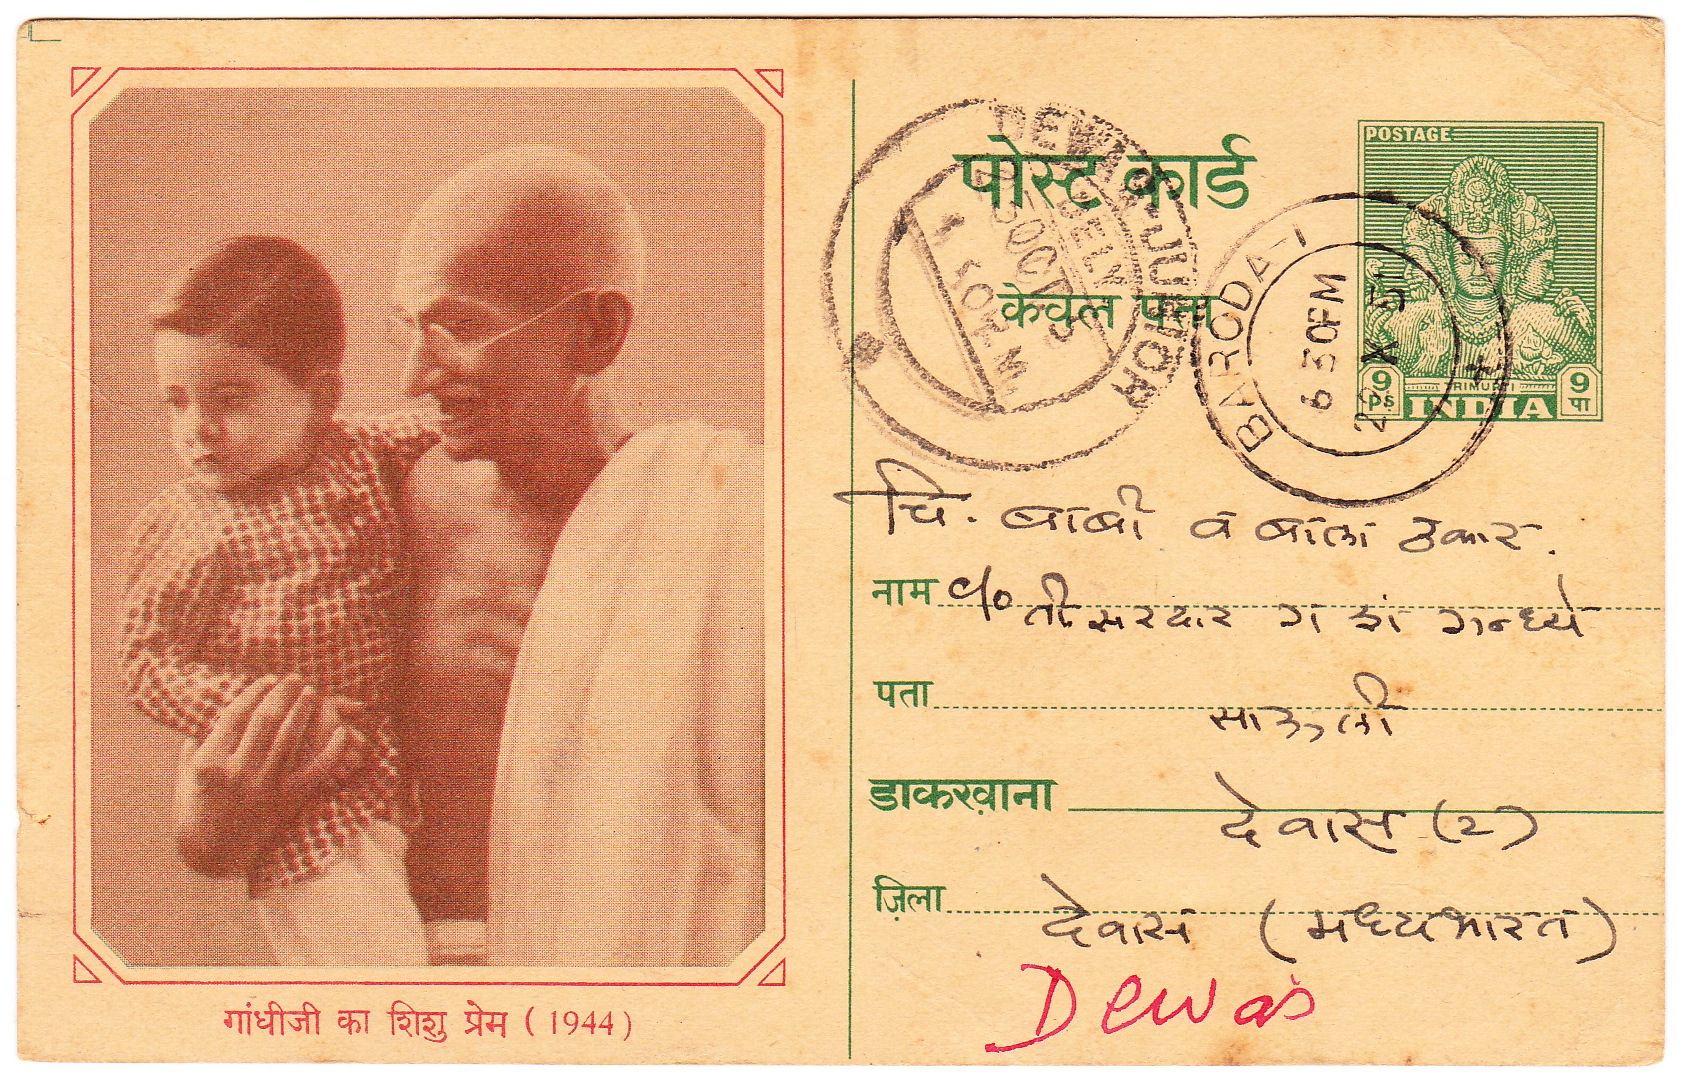 पोस्ट कार्ड
केवल पता
POSTAGE
TRIMURTI
9 Ps INDIA 9 पा
DEWAS JUNIOR
DELY
30 OCT
BARODA-1
6 30PM
29 X 51
चि. बाबी व बाला ठकार.
नाम c/o ती सरदार ग गन्ध्ये
पता
डाकख़ाना देवास (२)
ज़िला देवास (मध्यभारत)
Dewas
गांधीजी का शिशु प्रेम (1944)